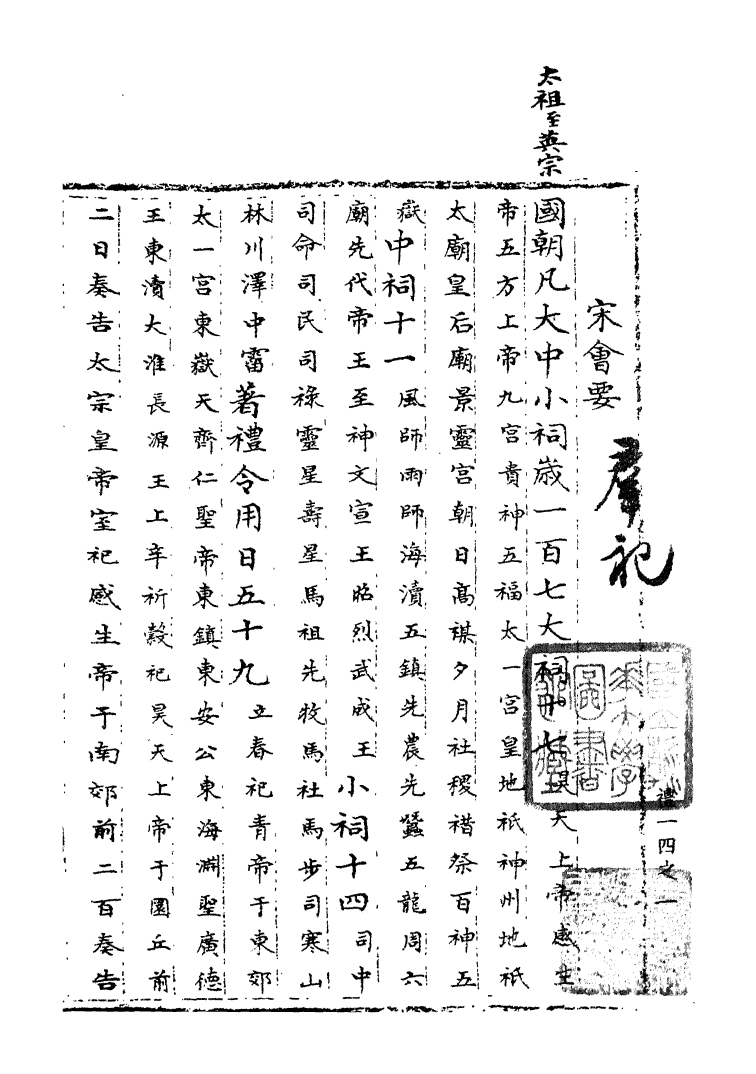 太祖至英宗
宋會要
羣祀
國朝凡大中小祠歲一百七大祠十七昊天上帝感生
帝五方上帝九宮貴神五福太一宮皇地祇神州地祇
太廟皇后廟景靈宮朝日高禖夕月社稷禇祭百神五
嶽中祠十一風師雨師海瀆五鎮先農先蠶五龍周六
廟先代帝王至神文宣王昭烈武成王小祠十四司中
司命司民司祿靈星壽星馬祖先牧馬社馬步司寒山
林川澤中霤著禮令用日五十九立春祀青帝于東郊
太一宮東嶽天齊仁聖帝東鎮東安公東海淵聖廣德
王東瀆大淮長源王上辛祈穀祀昊天上帝于圜丘前
二日奏告太宗皇帝室祀感生帝于南郊前二百奏告
禮一四之一